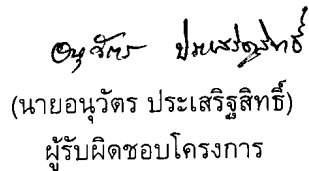 อนุวัตร ประเสริฐสิทธิ์
(นายอนุวัตร ประเสริฐสิทธิ์)
ผู้รับผิดชอบโครงการ